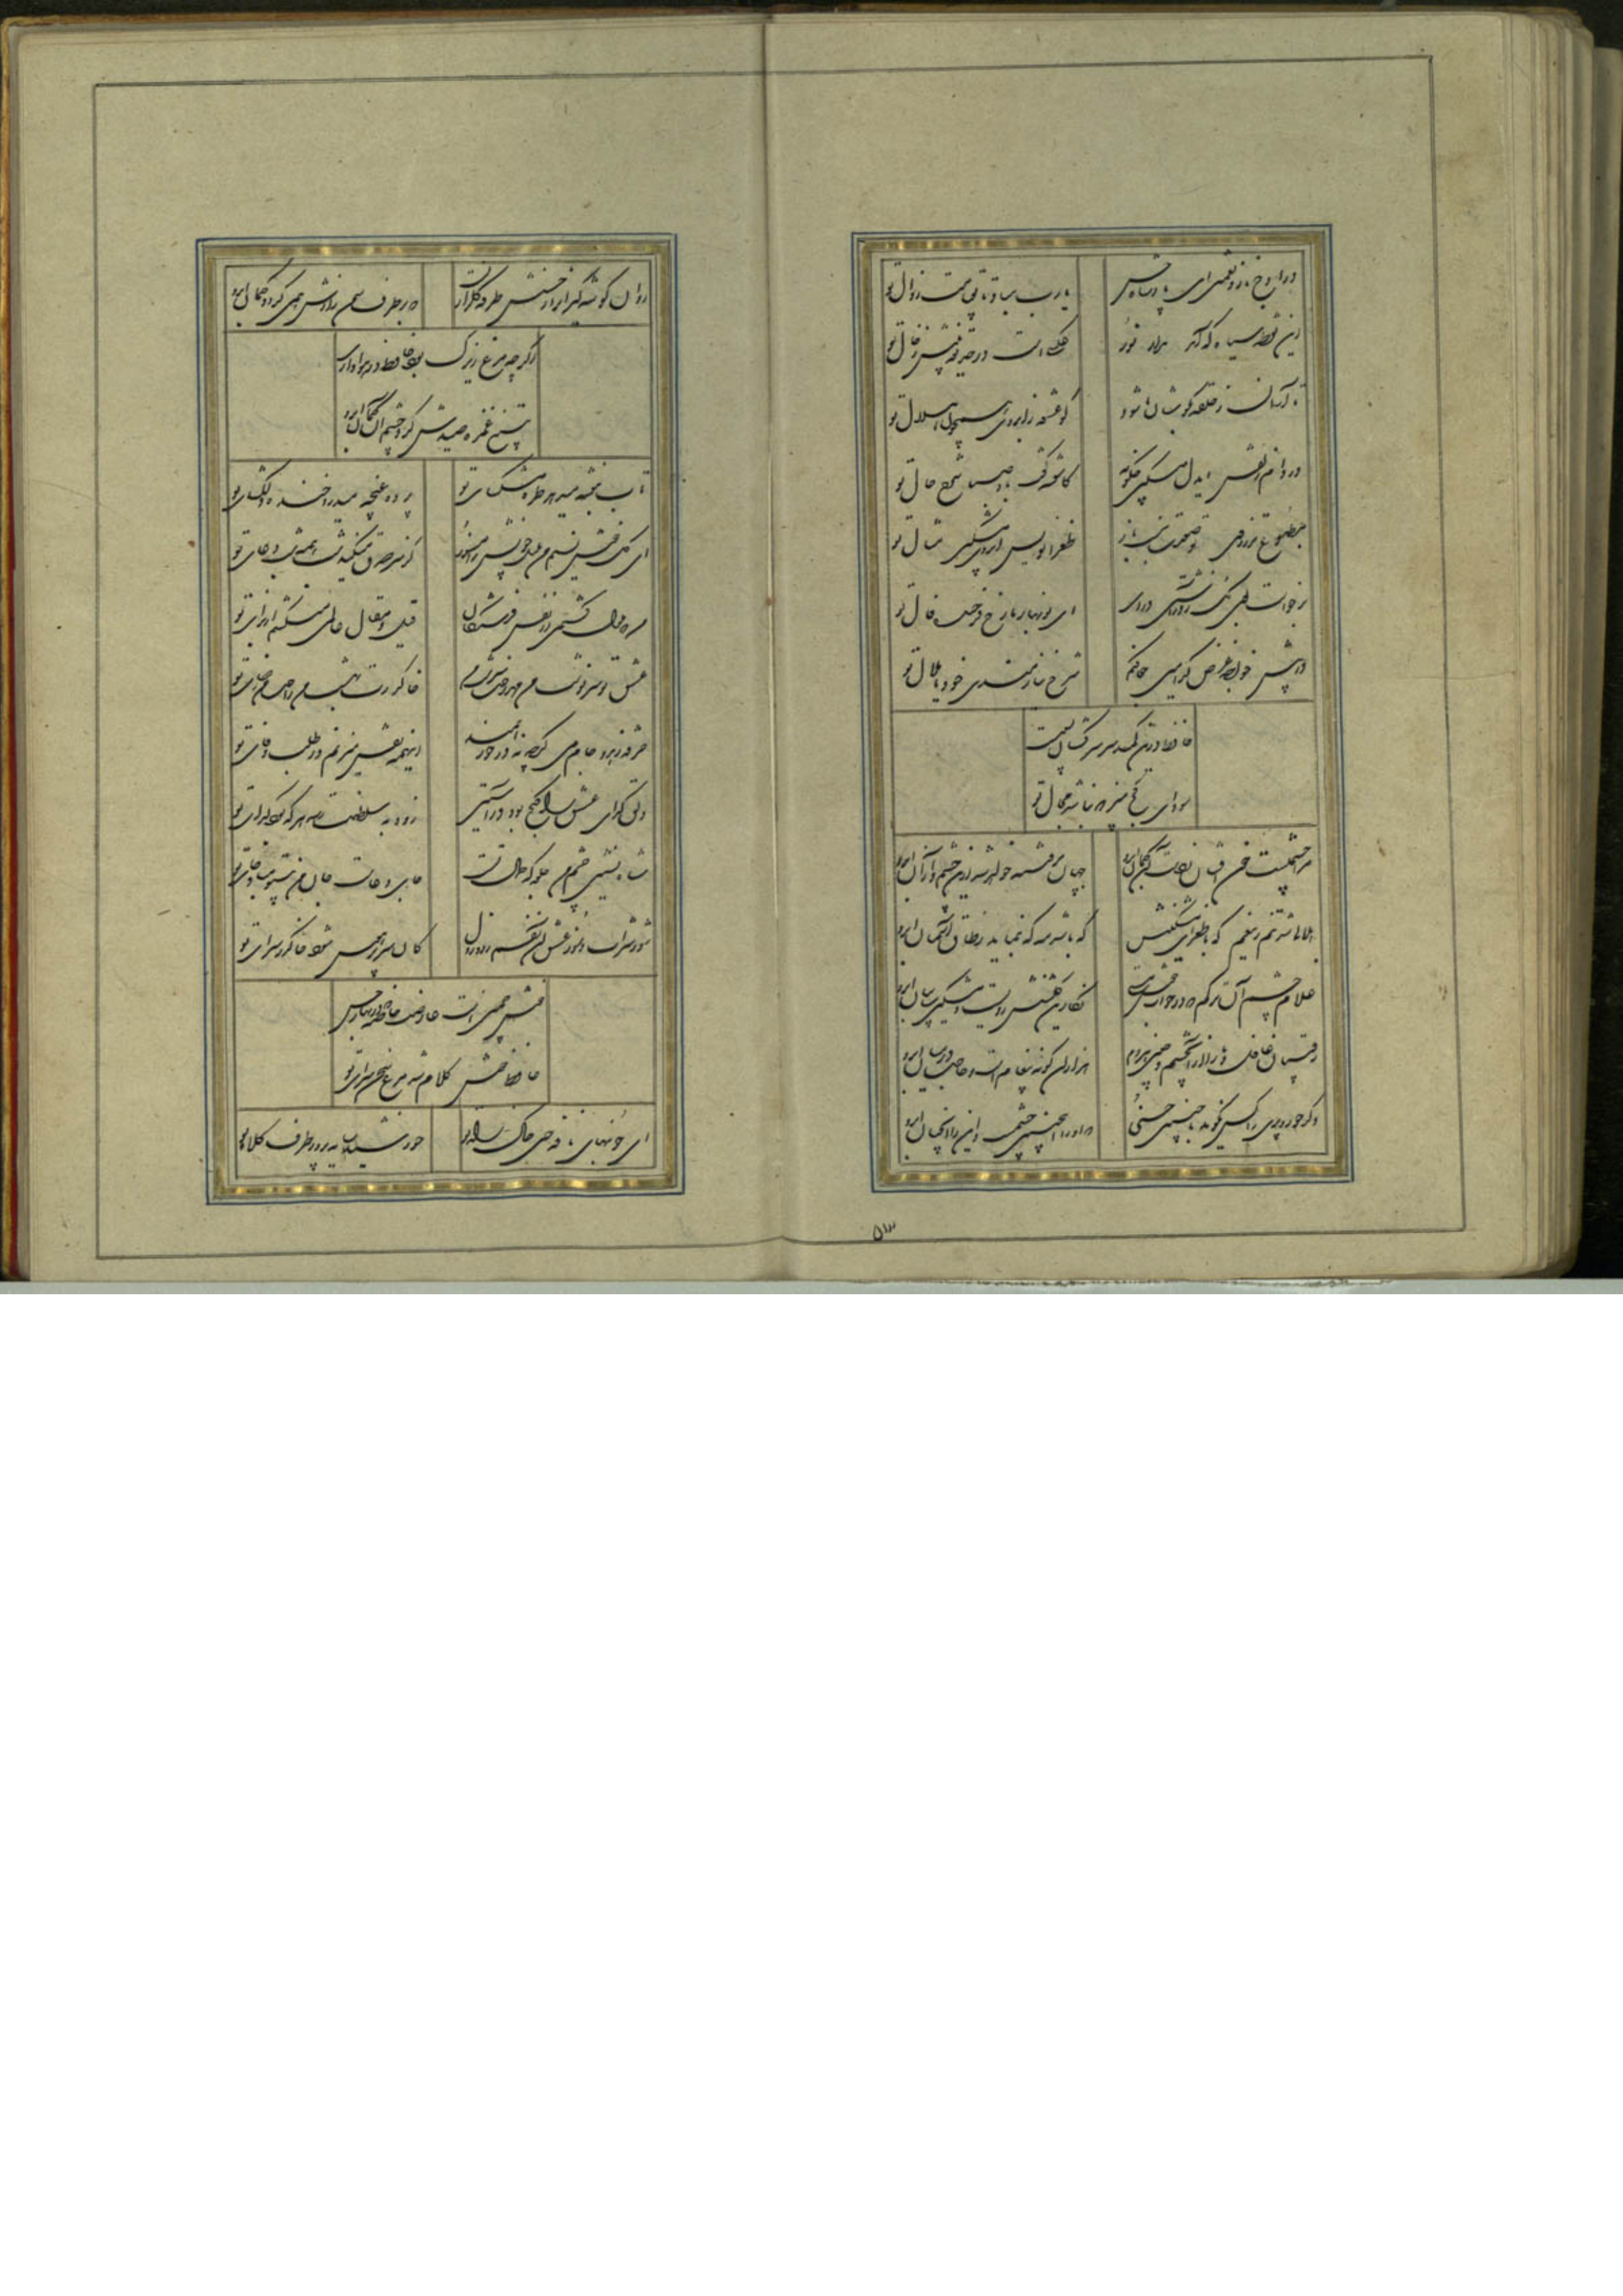 در اوج ناز و نعمتی ای پادشاه حسن
یارب مباد تا بقیامت زوال تو
این نقطه سیاه که آمد مدار نور
عکسیست در حدیقه بینش ز خال تو
تا آسمان ز حلقه بگوشان ما شود
کو عشوه ز ابروی همچون هلال تو
در دام زلفش ای دل مسکین چگونه
کاشفته گفت باد صبا شرح حال تو
مطبوع تر ز روی تو صورت نبست باز
طغرانویس ابروی مشکین مثال تو
برخاست بوی گل ز در آشتی درای
ای نوبهار ما رخ فرخنده فال تو
در پیش خواجه عرض کدامین جفا کنم
شرح نیازمندی خود یا ملال تو
حافظ درین کمند سر سرکشان بسیست
سودای کج مپز که نباشد مجال تو
مرا چشمیست خون افشان ز دست آن کمان ابرو
جهان پر فتنه خواهد شد از آن چشم و از آن ابرو
هلالی شد تنم زین غم که با طغرای مشکینش
که باشد مه که بنماید ز طاق آسمان ابرو
غلام چشم آن ترکم که در خواب خوش مستی
نگارین گلشنش رویست و مشکین سایبان ابرو
رقیبان غافل و ما را از آن چشم و جبین هردم
هزاران گونه پیغام است و حاجب در میان ابرو
دگر حور و پری را کس نگوید با چنین حسنی
که او را این چنین چشمست و این را آنچنان ابرو
۵۱۳
روان گوشه گیرانرا جبینش طرفه گلزاریست
که بر طرف سمن زارش همی گردد چمان ابرو
اگرچه مرغ زیرک بود حافظ در هواداری
بتیر غمزه صیدش کرد چشم آن کمان ابرو
تاب بنفشه میدهد طره مشکسای تو
پرده غنچه میدرد خنده دلگشای تو
ای گل خوش نسیم من بلبل خویش را مسوز
کز سر صدق میکند شب همه شب دعای تو
من که ملول گشتمی از نفس فرشتگان
قیل و مقال عالمی میکشم از برای تو
عشق تو سرنوشت من مهر رخت سرشت من
خاک درت بهشت من راحت من رضای تو
خرقه زهد و جام می گرچه نه در خور همند
اینهمه نقش میزنم در طلب رضای تو
دلق گدای عشق را گنج بود در آستین
زود به سلطنت رسد هر که بود گدای تو
شاه نشین چشم من جلوه گه خیال تست
جای دعاست جان من بیتو مباد جای تو
شور شراب و سوز عشق آن نفسم رود ز دل
کان سر پر هوس شود خاک در سرای تو
خوش چمنی است عارضت خاصه که در بهار حسن
حافظ خوش کلام شد مرغ سخن سرای تو
ای خونبهای نافه چین خاک راه تو
خورشید سایه پرور طرف کلاه تو